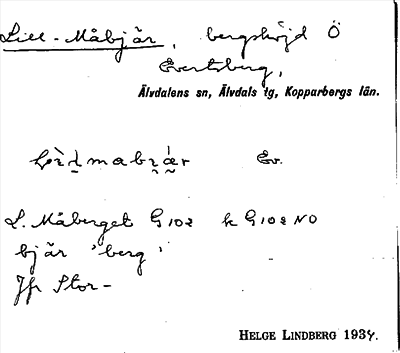 Lill-Måbjär, bergshöjd Ö
Evertsberg,
Älvdalens sn, Älvdals tg, Kopparbergs län.
Ev.
L. Måberget G102 k G102 NO
bjär 'berg'
Jfr Stor-
HELGE LINDBERG 1937.